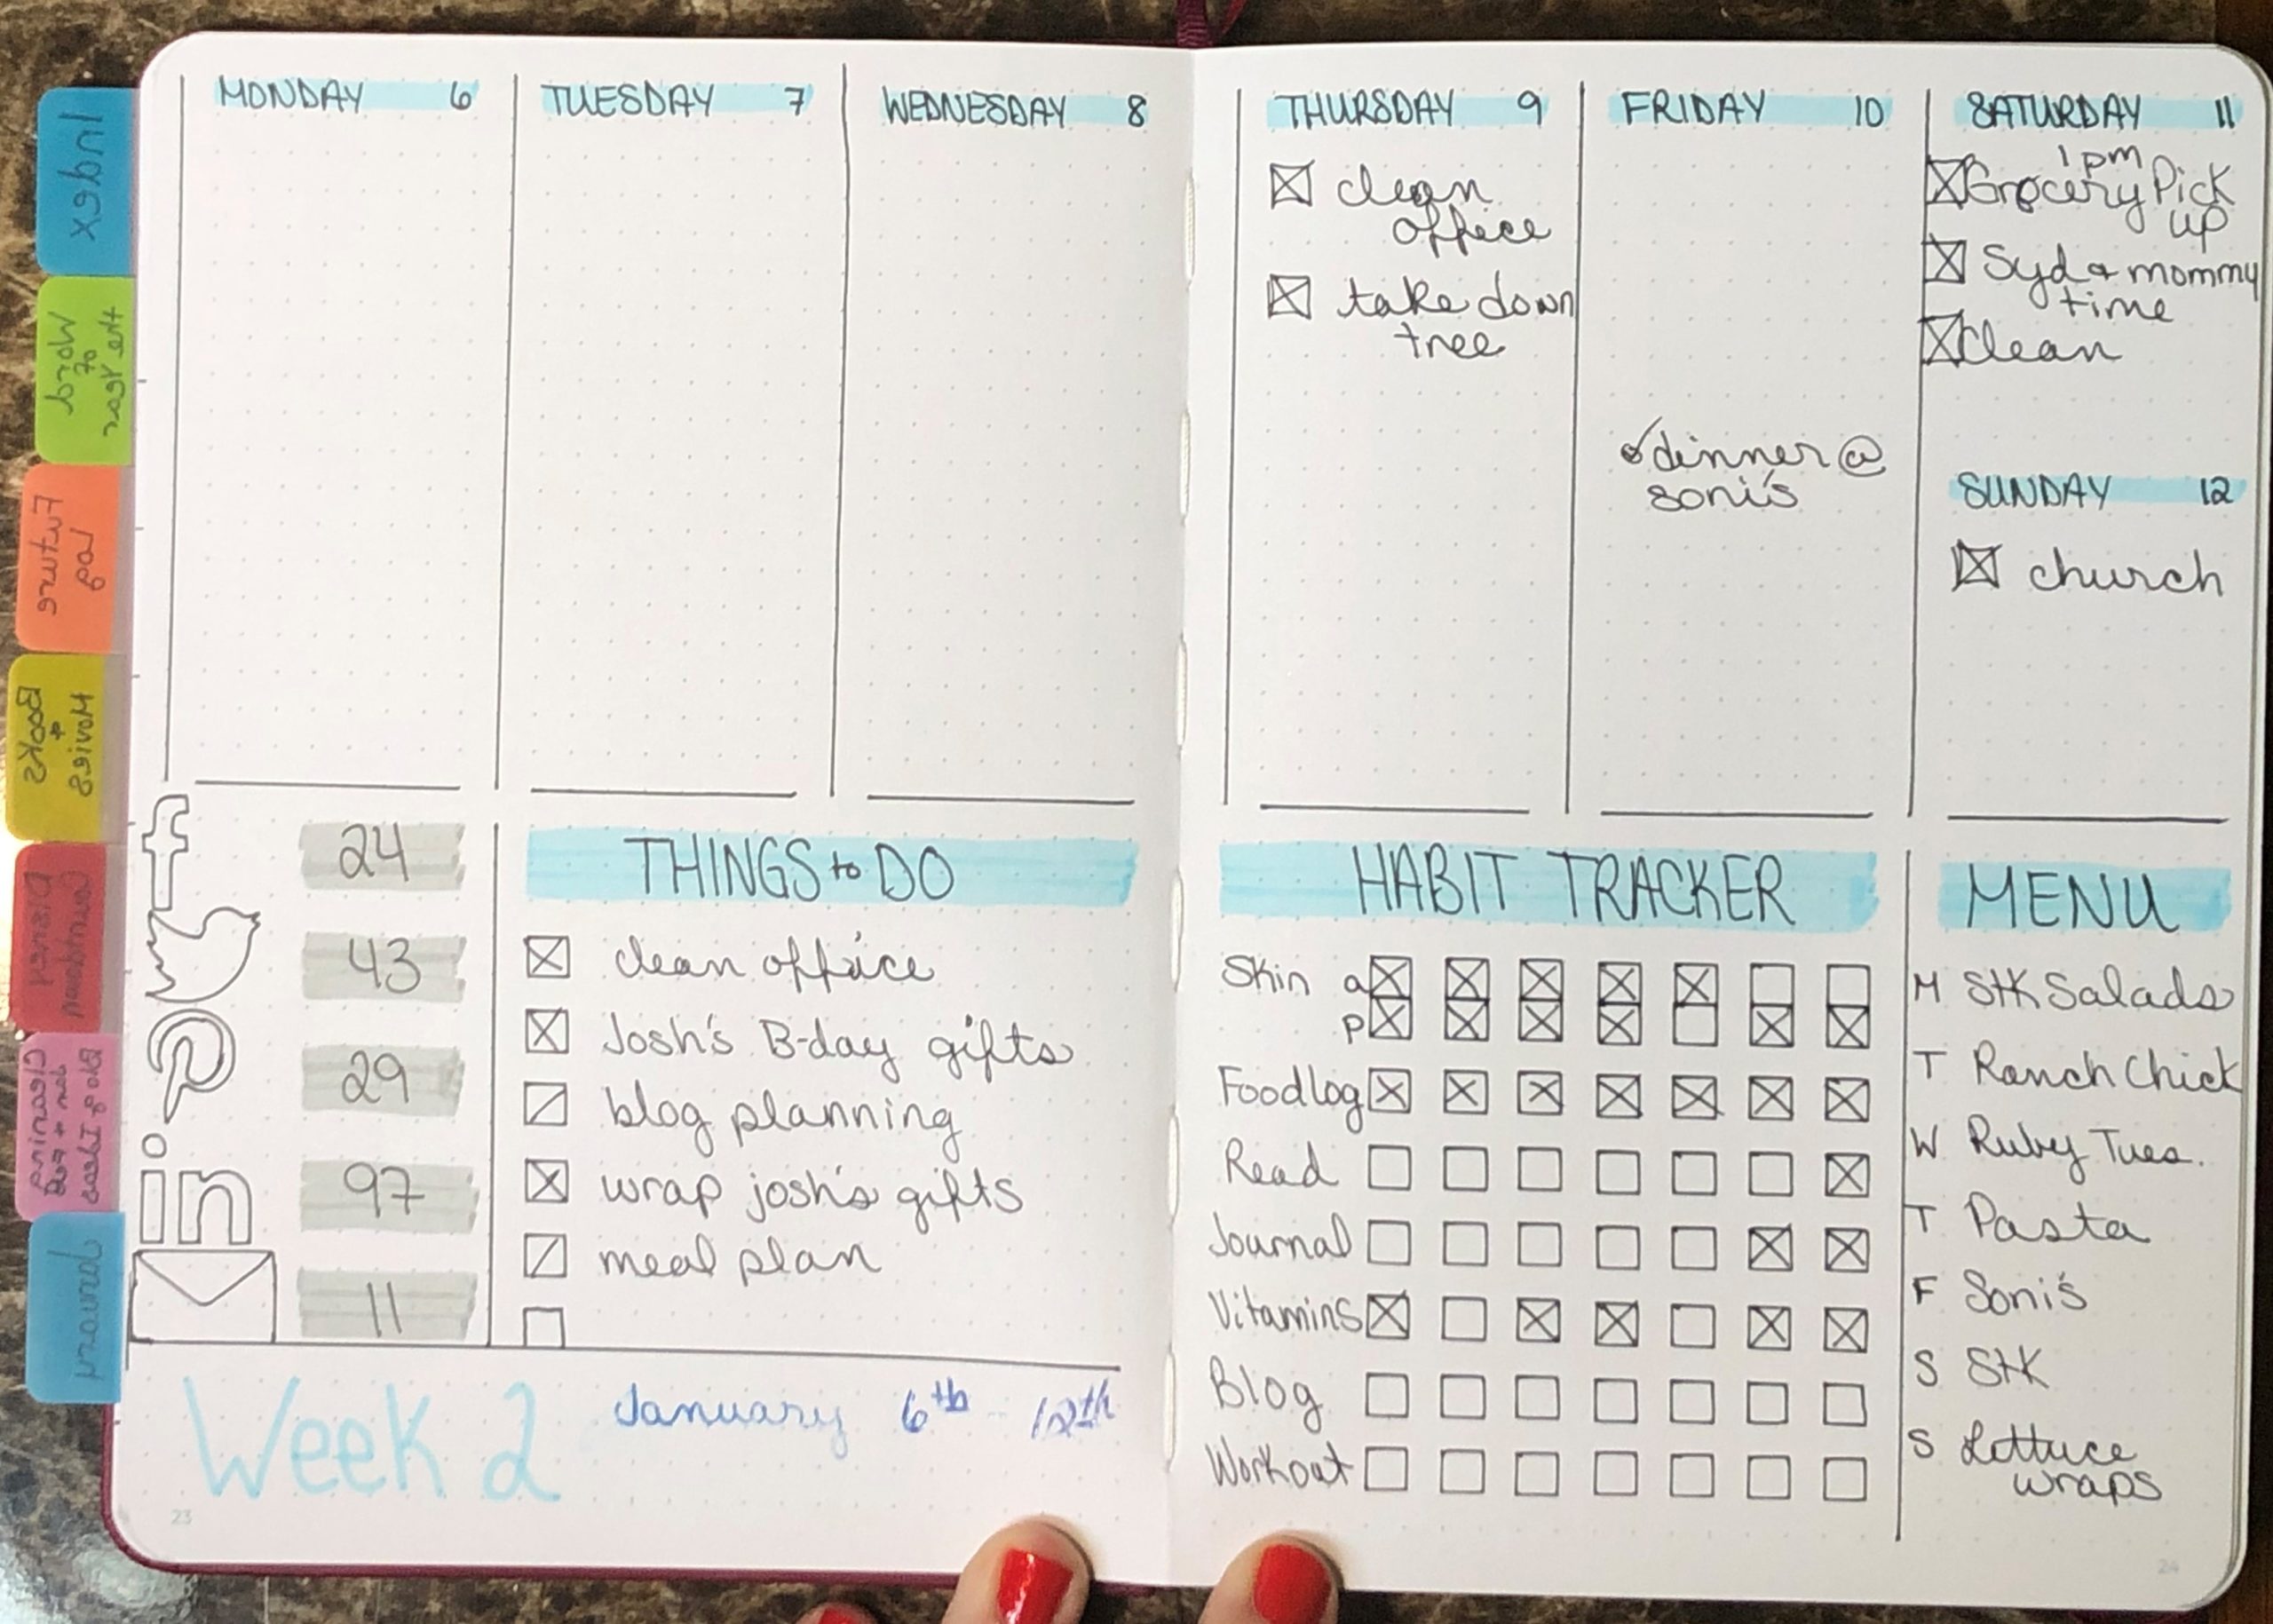 MONDAY 6
TUESDAY 7
WEDNESDAY 8
THURSDAY 9
clean
office
take down
tree
FRIDAY 10
dinner @
soni's
SATURDAY 11
1pm
Grocery Pick
up
Syd + mommy
time
Clean
SUNDAY 12
church
24
43
29
in 97
11
THINGS to DO
clean office
Josh's B-day gifts
blog planning
wrap josh's gifts
meal plan
HABIT TRACKER
Skin a
p
Food log
Read
Journal
Vitamins
Blog
Workout
MENU
M Stk Salads
T Ranch Chick
W Ruby Tues.
T Pasta
F Soni's
S Stk
S Lettuce
wraps
Week 2 January 6th - 12th
23
24
Index
the Year
of
Word
Future
log
Movies
+
Books
Cleaning
Blog Ideas